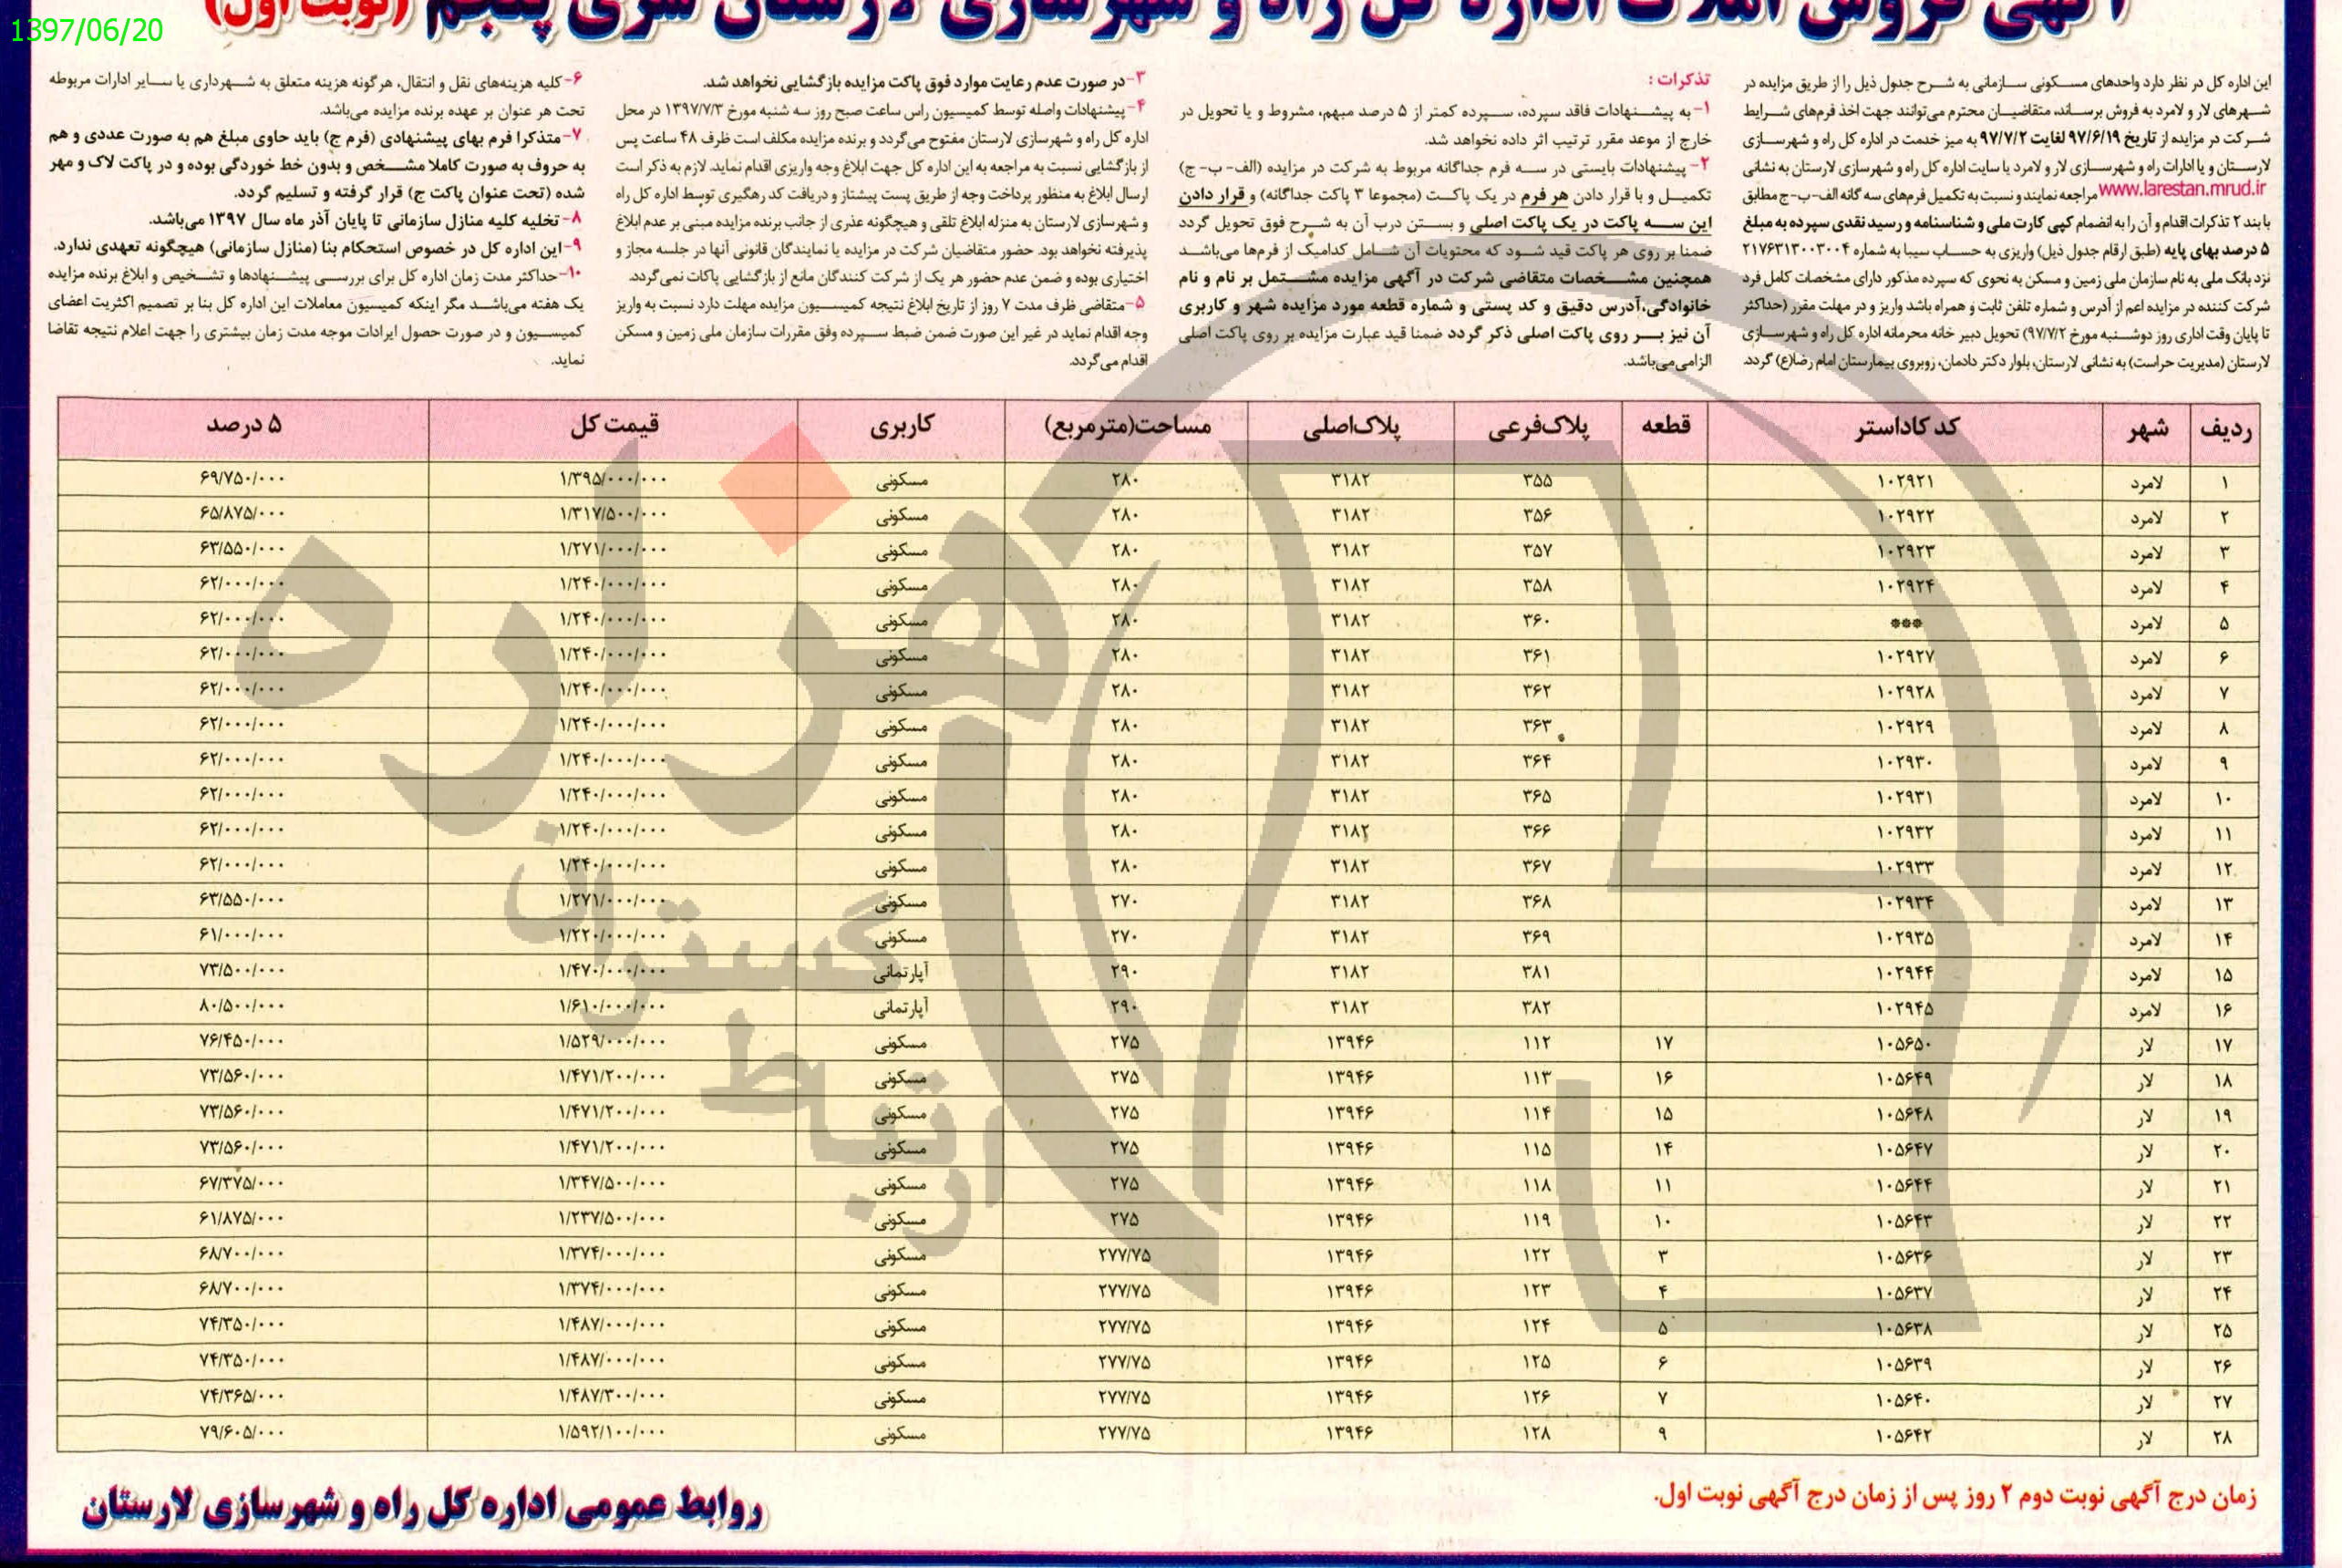 1397/06/20
آگهی فروش املاک اداره کل راه و شهرسازی لارستان سری پنجم (نوبت اول)
این اداره کل در نظر دارد واحدهای مسکونی سازمانی به شرح جدول ذیل را از طریق مزایده در
شهرهای لار و لامرد به فروش برساند، متقاضیان محترم می‌توانند جهت اخذ فرم‌های شرایط
شرکت در مزایده از تاریخ ۹۷/۶/۱۹ لغایت ۹۷/۷/۲ به میز خدمت در اداره کل راه و شهرسازی
لارستان و یا ادارات راه و شهرسازی لار و لامرد یا سایت اداره کل راه و شهرسازی لارستان به نشانی
www.larestan.mrud.ir مراجعه نمایند و نسبت به تکمیل فرم‌های سه گانه الف-ب-ج مطابق
با بند ۲ تذکرات اقدام و آن را به انضمام کپی کارت ملی و شناسنامه و رسید نقدی سپرده به مبلغ
۵ درصد بهای پایه (طبق ارقام جدول ذیل) واریزی به حساب سیبا به شماره ۲۱۷۶۳۱۳۰۰۳۰۰۴
نزد بانک ملی به نام سازمان ملی زمین و مسکن به نحوی که سپرده مذکور دارای مشخصات کامل فرد
شرکت کننده در مزایده اعم از آدرس و شماره تلفن ثابت و همراه باشد واریز و در مهلت مقرر (حداکثر
تا پایان وقت اداری روز دوشنبه مورخ ۹۷/۷/۲) تحویل دبیر خانه محرمانه اداره کل راه و شهرسازی
لارستان (مدیریت حراست) به نشانی لارستان، بلوار دکتر دادمان، روبروی بیمارستان امام رضا(ع) گردد.
تذکرات :
۱-به پیشنهادات فاقد سپرده، سپرده کمتر از ۵ درصد مبهم، مشروط و یا تحویل در
خارج از موعد مقرر ترتیب اثر داده نخواهد شد.
۲- پیشنهادات بایستی در سه فرم جداگانه مربوط به شرکت در مزایده (الف- ب- ج)
تکمیل و با قرار دادن هر فرم در یک پاکت (مجموعا ۳ پاکت جداگانه) و قرار دادن
این سه پاکت در یک پاکت اصلی و بستن درب آن به شرح فوق تحویل گردد
ضمنا بر روی هر پاکت قید شود که محتویات آن شامل کدامیک از فرم‌ها می‌باشد
همچنین مشخصات متقاضی شرکت در آگهی مزایده مشتمل بر نام و نام
خانوادگی،آدرس دقیق و کد پستی و شماره قطعه مورد مزایده شهر و کاربری
آن نیز بر روی پاکت اصلی ذکر گردد ضمنا قید عبارت مزایده بر روی پاکت اصلی
الزامی می‌باشد.
۳-در صورت عدم رعایت موارد فوق پاکت مزایده بازگشایی نخواهد شد.
۴- پیشنهادات واصله توسط کمیسیون راس ساعت صبح روز سه شنبه مورخ ۱۳۹۷/۷/۳ در محل
اداره کل راه و شهرسازی لارستان مفتوح می‌گردد و برنده مزایده مکلف است ظرف ۴۸ ساعت پس
از بازگشایی نسبت به مراجعه به این اداره کل جهت ابلاغ وجه واریزی اقدام نماید. لازم به ذکر است
ارسال ابلاغ به منظور پرداخت وجه از طریق پست پیشتاز و دریافت کد رهگیری توسط اداره کل راه
و شهرسازی لارستان به منزله ابلاغ تلقی و هیچگونه عذری از جانب برنده مزایده مبنی بر عدم ابلاغ
پذیرفته نخواهد بود. حضور متقاضیان شرکت در مزایده یا نمایندگان قانونی آنها در جلسه مجاز و
اختیاری بوده و ضمن عدم حضور هر یک از شرکت کنندگان مانع از بازگشایی پاکات نمی‌گردد.
۵-متقاضی ظرف مدت ۷ روز از تاریخ ابلاغ نتیجه کمیسیون مزایده مهلت دارد نسبت به واریز
وجه اقدام نماید در غیر این صورت ضمن ضبط سپرده وفق مقررات سازمان ملی زمین و مسکن
اقدام می‌گردد.
۶- کلیه هزینه‌های نقل و انتقال، هرگونه هزینه متعلق به شهرداری یا سایر ادارات مربوطه
تحت هر عنوان بر عهده برنده مزایده می‌باشد.
۷-متذکرا فرم بهای پیشنهادی (فرم ج) باید حاوی مبلغ هم به صورت عددی و هم
به حروف به صورت کاملا مشخص و بدون خط خوردگی بوده و در پاکت لاک و مهر
شده (تحت عنوان پاکت ج) قرار گرفته و تسلیم گردد.
۸- تخلیه کلیه منازل سازمانی تا پایان آذر ماه سال ۱۳۹۷ می‌باشد.
۹-این اداره کل در خصوص استحکام بنا (منازل سازمانی) هیچگونه تعهدی ندارد.
۱۰-حداکثر مدت زمان اداره کل برای بررسی پیشنهادها و تشخیص و ابلاغ برنده مزایده
یک هفته می‌باشد مگر اینکه کمیسیون معاملات این اداره کل بنا بر تصمیم اکثریت اعضای
کمیسیون و در صورت حصول ایرادات موجه مدت زمان بیشتری را جهت اعلام نتیجه تقاضا
نماید.
ردیف شهر کد کاداستر قطعه پلاک‌فرعی پلاک‌اصلی مساحت(مترمربع) کاربری قیمت کل ۵ درصد
۱ لامرد ۱۰۲۹۲۱ ۳۵۵ ۳۱۸۲ ۲۸۰ مسکونی ۱/۳۹۵/۰۰۰/۰۰۰ ۶۹/۷۵۰/۰۰۰
۲ لامرد ۱۰۲۹۲۲ ۳۵۶ ۳۱۸۲ ۲۸۰ مسکونی ۱/۳۱۷/۵۰۰/۰۰۰ ۶۵/۸۷۵/۰۰۰
۳ لامرد ۱۰۲۹۲۳ ۳۵۷ ۳۱۸۲ ۲۸۰ مسکونی ۱/۲۷۱/۰۰۰/۰۰۰ ۶۳/۵۵۰/۰۰۰
۴ لامرد ۱۰۲۹۲۴ ۳۵۸ ۳۱۸۲ ۲۸۰ مسکونی ۱/۲۴۰/۰۰۰/۰۰۰ ۶۲/۰۰۰/۰۰۰
۵ لامرد *** ۳۶۰ ۳۱۸۲ ۲۸۰ مسکونی ۱/۲۴۰/۰۰۰/۰۰۰ ۶۲/۰۰۰/۰۰۰
۶ لامرد ۱۰۲۹۲۷ ۳۶۱ ۳۱۸۲ ۲۸۰ مسکونی ۱/۲۴۰/۰۰۰/۰۰۰ ۶۲/۰۰۰/۰۰۰
۷ لامرد ۱۰۲۹۲۸ ۳۶۲ ۳۱۸۲ ۲۸۰ مسکونی ۱/۲۴۰/۰۰۰/۰۰۰ ۶۲/۰۰۰/۰۰۰
۸ لامرد ۱۰۲۹۲۹ ۳۶۳ ۳۱۸۲ ۲۸۰ مسکونی ۱/۲۴۰/۰۰۰/۰۰۰ ۶۲/۰۰۰/۰۰۰
۹ لامرد ۱۰۲۹۳۰ ۳۶۴ ۳۱۸۲ ۲۸۰ مسکونی ۱/۲۴۰/۰۰۰/۰۰۰ ۶۲/۰۰۰/۰۰۰
۱۰ لامرد ۱۰۲۹۳۱ ۳۶۵ ۳۱۸۲ ۲۸۰ مسکونی ۱/۲۴۰/۰۰۰/۰۰۰ ۶۲/۰۰۰/۰۰۰
۱۱ لامرد ۱۰۲۹۳۲ ۳۶۶ ۳۱۸۲ ۲۸۰ مسکونی ۱/۲۴۰/۰۰۰/۰۰۰ ۶۲/۰۰۰/۰۰۰
۱۲ لامرد ۱۰۲۹۳۳ ۳۶۷ ۳۱۸۲ ۲۸۰ مسکونی ۱/۲۴۰/۰۰۰/۰۰۰ ۶۲/۰۰۰/۰۰۰
۱۳ لامرد ۱۰۲۹۳۴ ۳۶۸ ۳۱۸۲ ۲۷۰ مسکونی ۱/۲۷۱/۰۰۰/۰۰۰ ۶۳/۵۵۰/۰۰۰
۱۴ لامرد ۱۰۲۹۳۵ ۳۶۹ ۳۱۸۲ ۲۷۰ مسکونی ۱/۲۲۰/۰۰۰/۰۰۰ ۶۱/۰۰۰/۰۰۰
۱۵ لامرد ۱۰۲۹۴۴ ۳۸۱ ۳۱۸۲ ۲۹۰ آپارتمانی ۱/۴۷۰/۰۰۰/۰۰۰ ۷۳/۵۰۰/۰۰۰
۱۶ لامرد ۱۰۲۹۴۵ ۳۸۲ ۳۱۸۲ ۲۹۰ آپارتمانی ۱/۶۱۰/۰۰۰/۰۰۰ ۸۰/۵۰۰/۰۰۰
۱۷ لار ۱۰۵۶۵۰ ۱۷ ۱۱۲ ۱۳۹۴۶ ۲۷۵ مسکونی ۱/۵۲۹/۰۰۰/۰۰۰ ۷۶/۴۵۰/۰۰۰
۱۸ لار ۱۰۵۶۴۹ ۱۶ ۱۱۳ ۱۳۹۴۶ ۲۷۵ مسکونی ۱/۴۷۱/۲۰۰/۰۰۰ ۷۳/۵۶۰/۰۰۰
۱۹ لار ۱۰۵۶۴۸ ۱۵ ۱۱۴ ۱۳۹۴۶ ۲۷۵ مسکونی ۱/۴۷۱/۲۰۰/۰۰۰ ۷۳/۵۶۰/۰۰۰
۲۰ لار ۱۰۵۶۴۷ ۱۴ ۱۱۵ ۱۳۹۴۶ ۲۷۵ مسکونی ۱/۴۷۱/۲۰۰/۰۰۰ ۷۳/۵۶۰/۰۰۰
۲۱ لار ۱۰۵۶۴۴ ۱۱ ۱۱۸ ۱۳۹۴۶ ۲۷۵ مسکونی ۱/۳۴۷/۵۰۰/۰۰۰ ۶۷/۳۷۵/۰۰۰
۲۲ لار ۱۰۵۶۴۳ ۱۰ ۱۱۹ ۱۳۹۴۶ ۲۷۵ مسکونی ۱/۲۳۷/۵۰۰/۰۰۰ ۶۱/۸۷۵/۰۰۰
۲۳ لار ۱۰۵۶۳۶ ۳ ۱۲۲ ۱۳۹۴۶ ۲۷۷/۷۵ مسکونی ۱/۳۷۴/۰۰۰/۰۰۰ ۶۸/۷۰۰/۰۰۰
۲۴ لار ۱۰۵۶۳۷ ۴ ۱۲۳ ۱۳۹۴۶ ۲۷۷/۷۵ مسکونی ۱/۳۷۴/۰۰۰/۰۰۰ ۶۸/۷۰۰/۰۰۰
۲۵ لار ۱۰۵۶۳۸ ۵ ۱۲۴ ۱۳۹۴۶ ۲۷۷/۷۵ مسکونی ۱/۴۸۷/۰۰۰/۰۰۰ ۷۴/۳۵۰/۰۰۰
۲۶ لار ۱۰۵۶۳۹ ۶ ۱۲۵ ۱۳۹۴۶ ۲۷۷/۷۵ مسکونی ۱/۴۸۷/۰۰۰/۰۰۰ ۷۴/۳۵۰/۰۰۰
۲۷ لار ۱۰۵۶۴۰ ۷ ۱۲۶ ۱۳۹۴۶ ۲۷۷/۷۵ مسکونی ۱/۴۸۷/۳۰۰/۰۰۰ ۷۴/۳۶۵/۰۰۰
۲۸ لار ۱۰۵۶۴۲ ۹ ۱۲۸ ۱۳۹۴۶ ۲۷۷/۷۵ مسکونی ۱/۵۹۲/۱۰۰/۰۰۰ ۷۹/۶۰۵/۰۰۰
هزاره
گستران
ارتباط
زمان درج آگهی نوبت دوم ۲ روز پس از زمان درج آگهی نوبت اول.
روابط عمومی اداره کل راه و شهرسازی لارستان